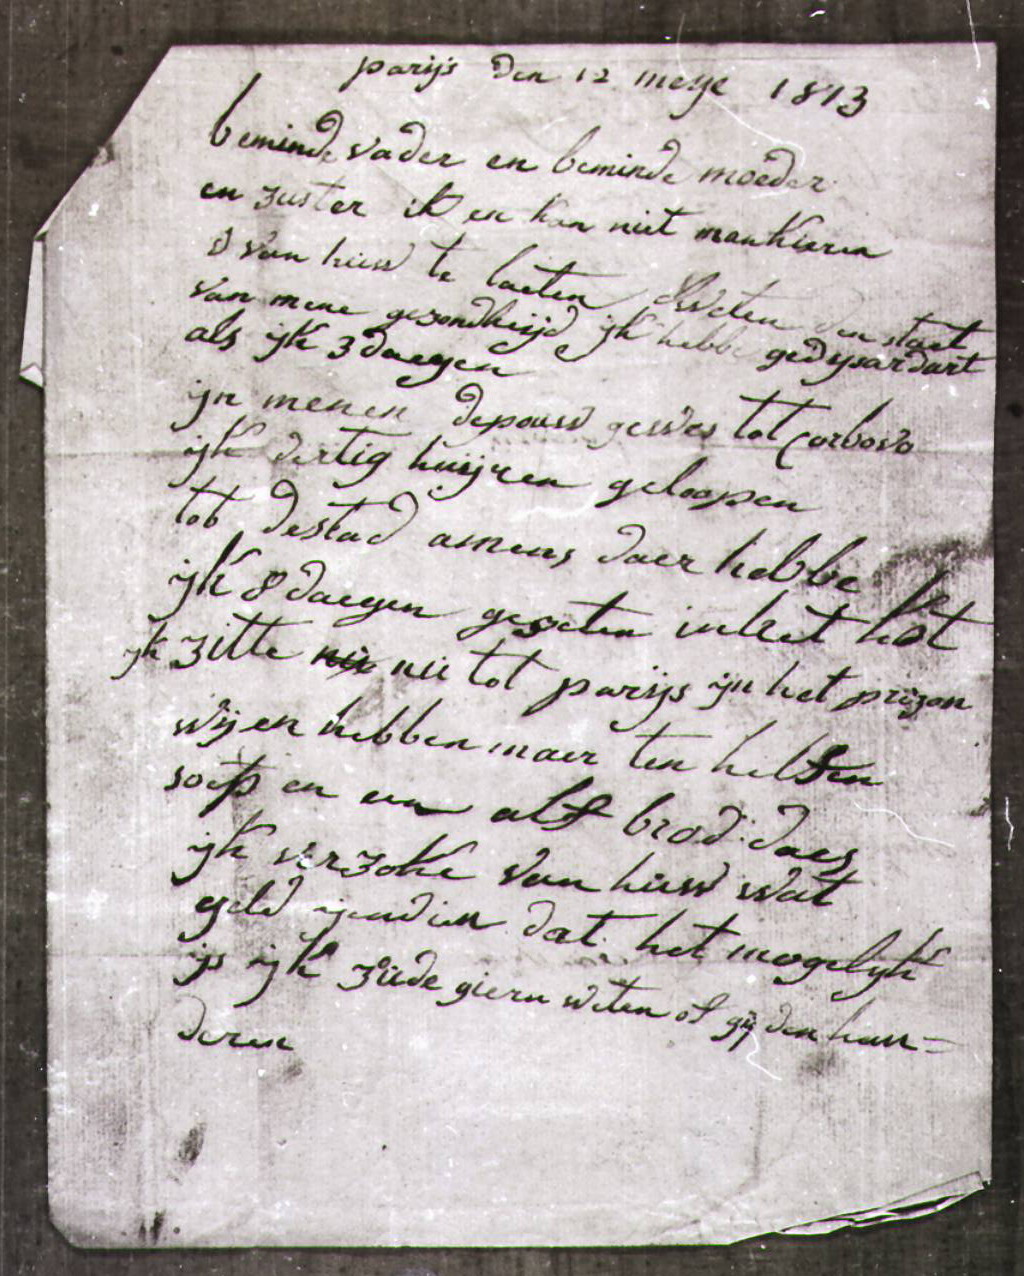 parijs den 12 meije 1813
beminde vader en beminde moeder
en zuster ik en kan niet mankieren
van huw te laeten weten den staet
van mene gezondheijd ijk hebbe gedysardart
als ijk 3 daegen
ijn menen depouw gewes tot
ijk dertig huijren geloopen
tot destad amens daer hebbe
ijk 8 daegen geseten in het kot
ijk zitte nu tot parijs ijn het prizon
wij en hebben maer ten helften
soep en een alf brod daes
ijk verzoke van huw wat
geld indien dat het mogelijk
ijs ijk zude giern weten of gij den han=
deren